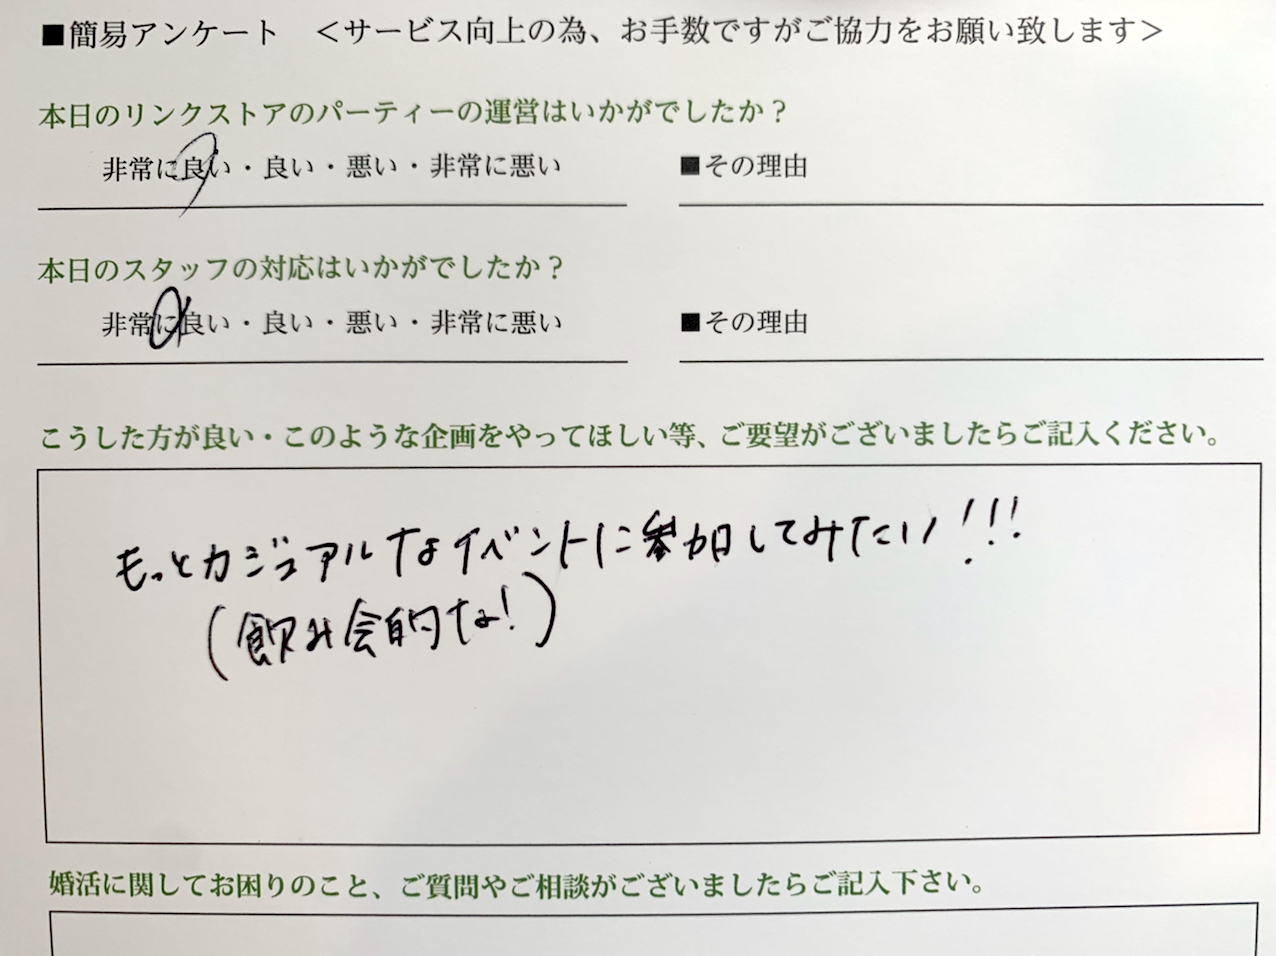 ■簡易アンケート ＜サービス向上の為、お手数ですがご協力をお願い致します＞
本日のリンクストアのパーティーの運営はいかがでしたか？
非常に良い・良い・悪い・非常に悪い ■その理由
本日のスタッフの対応はいかがでしたか？
非常に良い・良い・悪い・非常に悪い ■その理由
こうした方が良い・このような企画をやってほしい等、ご要望がございましたらご記入ください。
もっとカジュアルなイベントに参加してみたい!!!
(飲み会的な!)
婚活に関してお困りのこと、ご質問やご相談がございましたらご記入下さい。